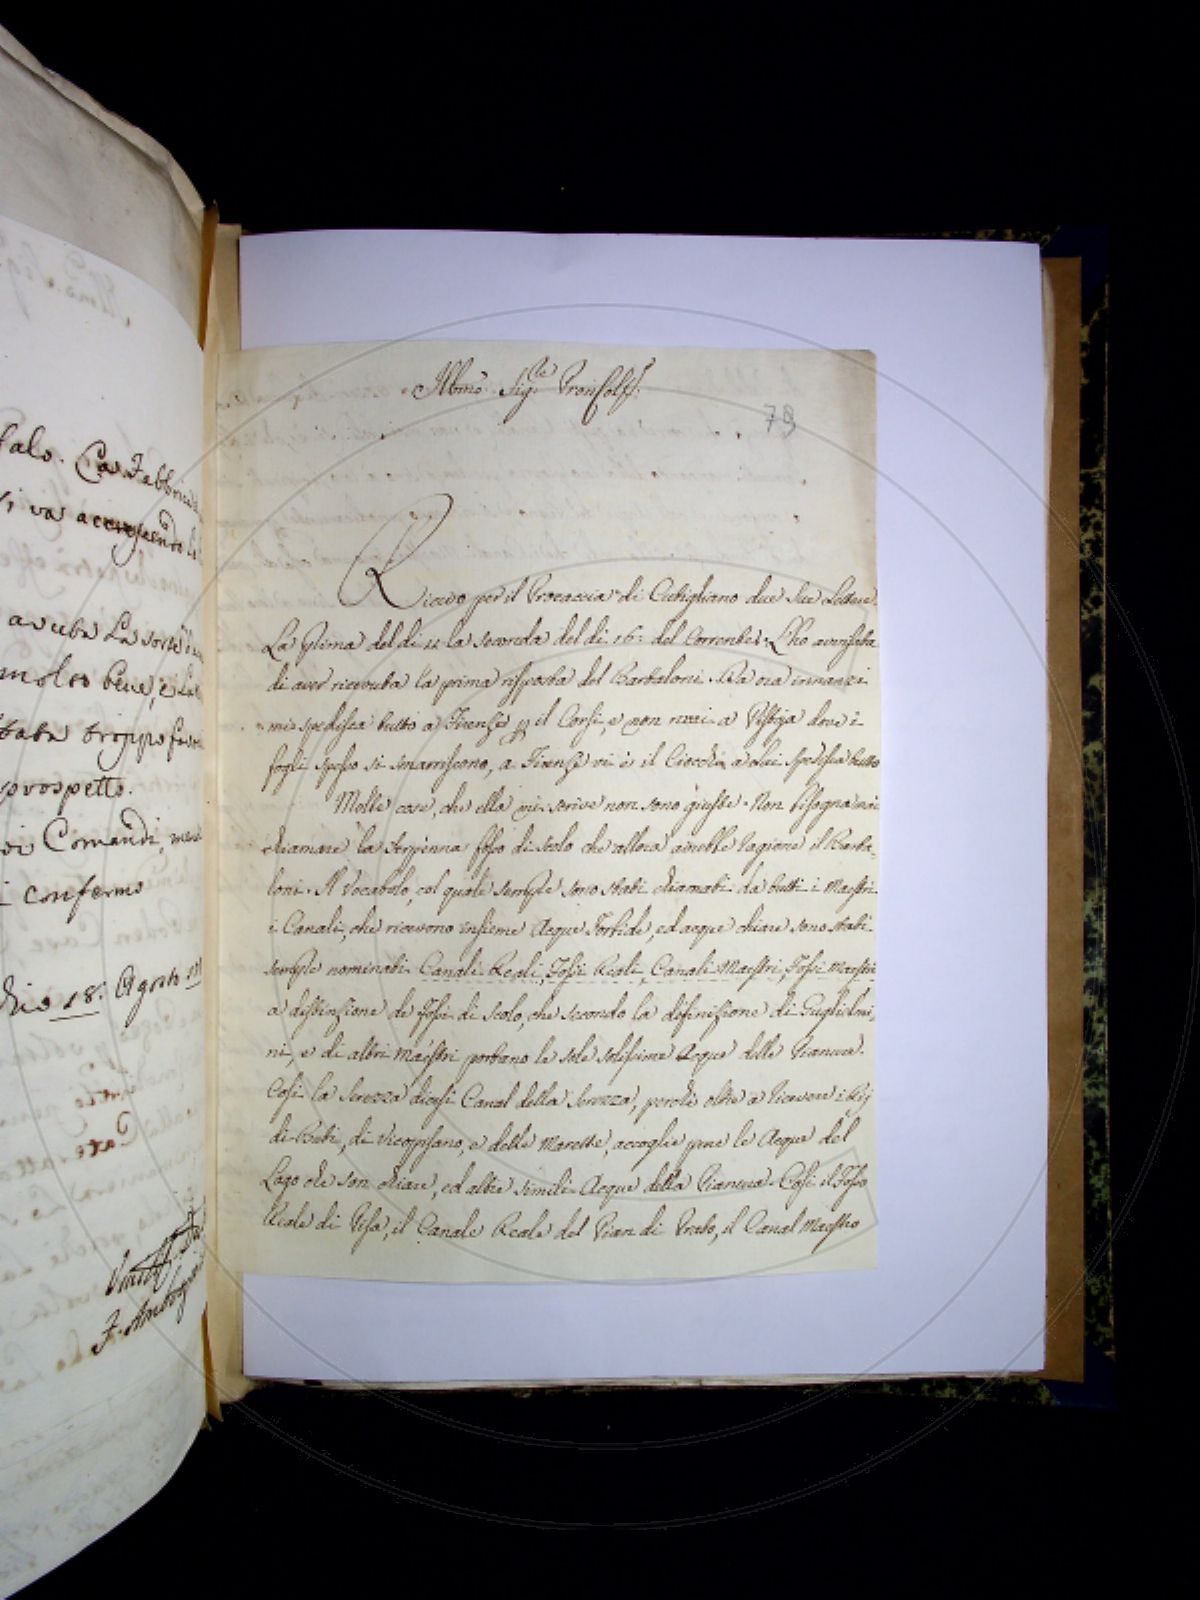 falo. Co Fabbric
si va accrescendo
avuta La sorte
molto bene, e La
tata troppo
prospetto.
Comandi,
confermo
18. Agosto
Illmo. Sig.re Pron Col.mo
79
Ricevo per il Procaccia di Cutigliano due Sue Lettere.
La Prima del dì 11 la seconda del dì 16: del Corrente. L'ho avvisata
di aver ricevuta la prima risposta del Barbaloni. Da ora innanzi
mi spedisca tutto a Firenze p il Corsi, e non mai a Pistoja dove i
fogli spesso si smarriscono, a Firenze vi è il Ciocchi, a Lui spedisca tutto
Molte cose, che ella mi scrive non sono giuste. Non bisogna mai
chiamare la Arpinna fosso di scolo che allora avrebbe ragione il Barba-
loni. Il Vocabolo, col quale sempre sono stati chiamati da tutti i Maestri
i Canali, che ricevono insieme Acque Torbide, ed acque chiare sono stati
sempre nominati Canali Reali, Fossi Reali, Canali Maestri, Fossi Maestri
a distinzione de Fossi di scolo, che secondo la definizione di Guglielmi-
ni, e di altri Maestri portano le sole solissime Acque delle Pianure.
Così la Serezza dicesi Canal della Serezza, perchè oltre a ricevere i Rij
di Buti, di Vicopisano, e delle Morette, accoglie pure le Acque del
Lago che son chiare, ed altre simili Acque della Pianura. Così il Fosso
Reale di Pisa, il Canale Reale del Pian di Prato, il Canal Maestro